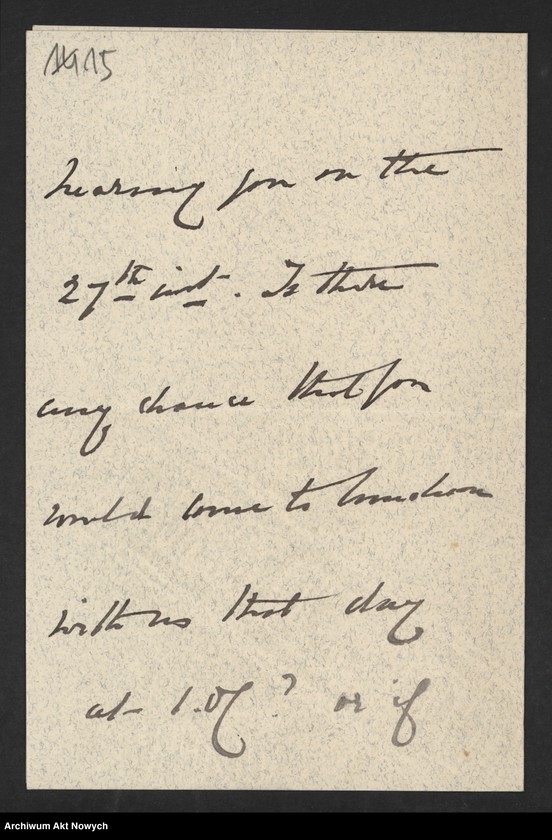 hearing you on the
27th inst. Is there
any chance that you
would come to luncheon
with us that day
at 1.0? or if
Archiwum Akt Nowych